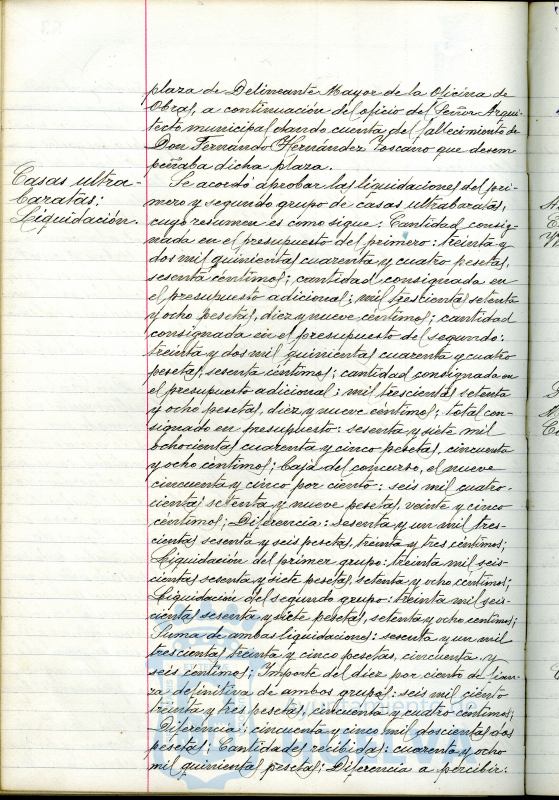 plaza de Delineante Mayor de la Oficina de
Obras, a continuación del oficio del Señor Arqui-
tecto municipal dando cuenta del fallecimiento de
Don Fernando Hernández Toscano que desem
peñaba dicha plaza.
Casas ultra-
baratas:
Liquidación.
Se acordó aprobar las liquidaciones del pri-
mero y segundo grupo de casas ultrabaratas,
cuyo resumen es como sigue: Cantidad consig-
nada en el presupuesto del primero: treinta y
dos mil quinientas cuarenta y cuatro pesetas,
sesenta céntimos; cantidad consignada en
el presupuesto adicional; mil trescientas setenta
y ocho pesetas, diez y nueve céntimos; cantidad
consignada en el presupuesto del segundo:
treinta y dos mil quinientas cuarenta y cuatro
pesetas, sesenta céntimos; cantidad consignada en
el presupuesto adicional: mil trescientas setenta
y ocho pesetas, diez y nueve céntimos; total con-
signado en presupuesto: sesenta y siete mil
ochocientas cuarenta y cinco pesetas, cincuenta
y ocho céntimos; baja del concurso, el nueve
cincuenta y cinco por ciento: seis mil cuatro-
cientas setenta y nueve pesetas, veinte y cinco
céntimos; Diferencia: sesenta y un mil tres-
cientas sesenta y seis pesetas, treinta y tres céntimos;
Liquidación del primer grupo: treinta mil seis-
cientas sesenta y siete pesetas, setenta y ocho céntimos;
Liquidación del segundo grupo: treinta mil seis-
cientas sesenta y siete pesetas, setenta y ocho céntimos;
Suma de ambas liquidaciones: sesenta y un mil
trescientas treinta y cinco pesetas, cincuenta y
seis céntimos; Importe del diez por ciento de fian-
za definitiva de ambos grupos: seis mil ciento
treinta y tres pesetas, cincuenta y cuatro céntimos;
Diferencia: cincuenta y cinco mil doscientas dos
pesetas; Cantidades recibidas: cuarenta y ocho
mil quinientas pesetas; Diferencia a percibir:
Ayuntamiento de